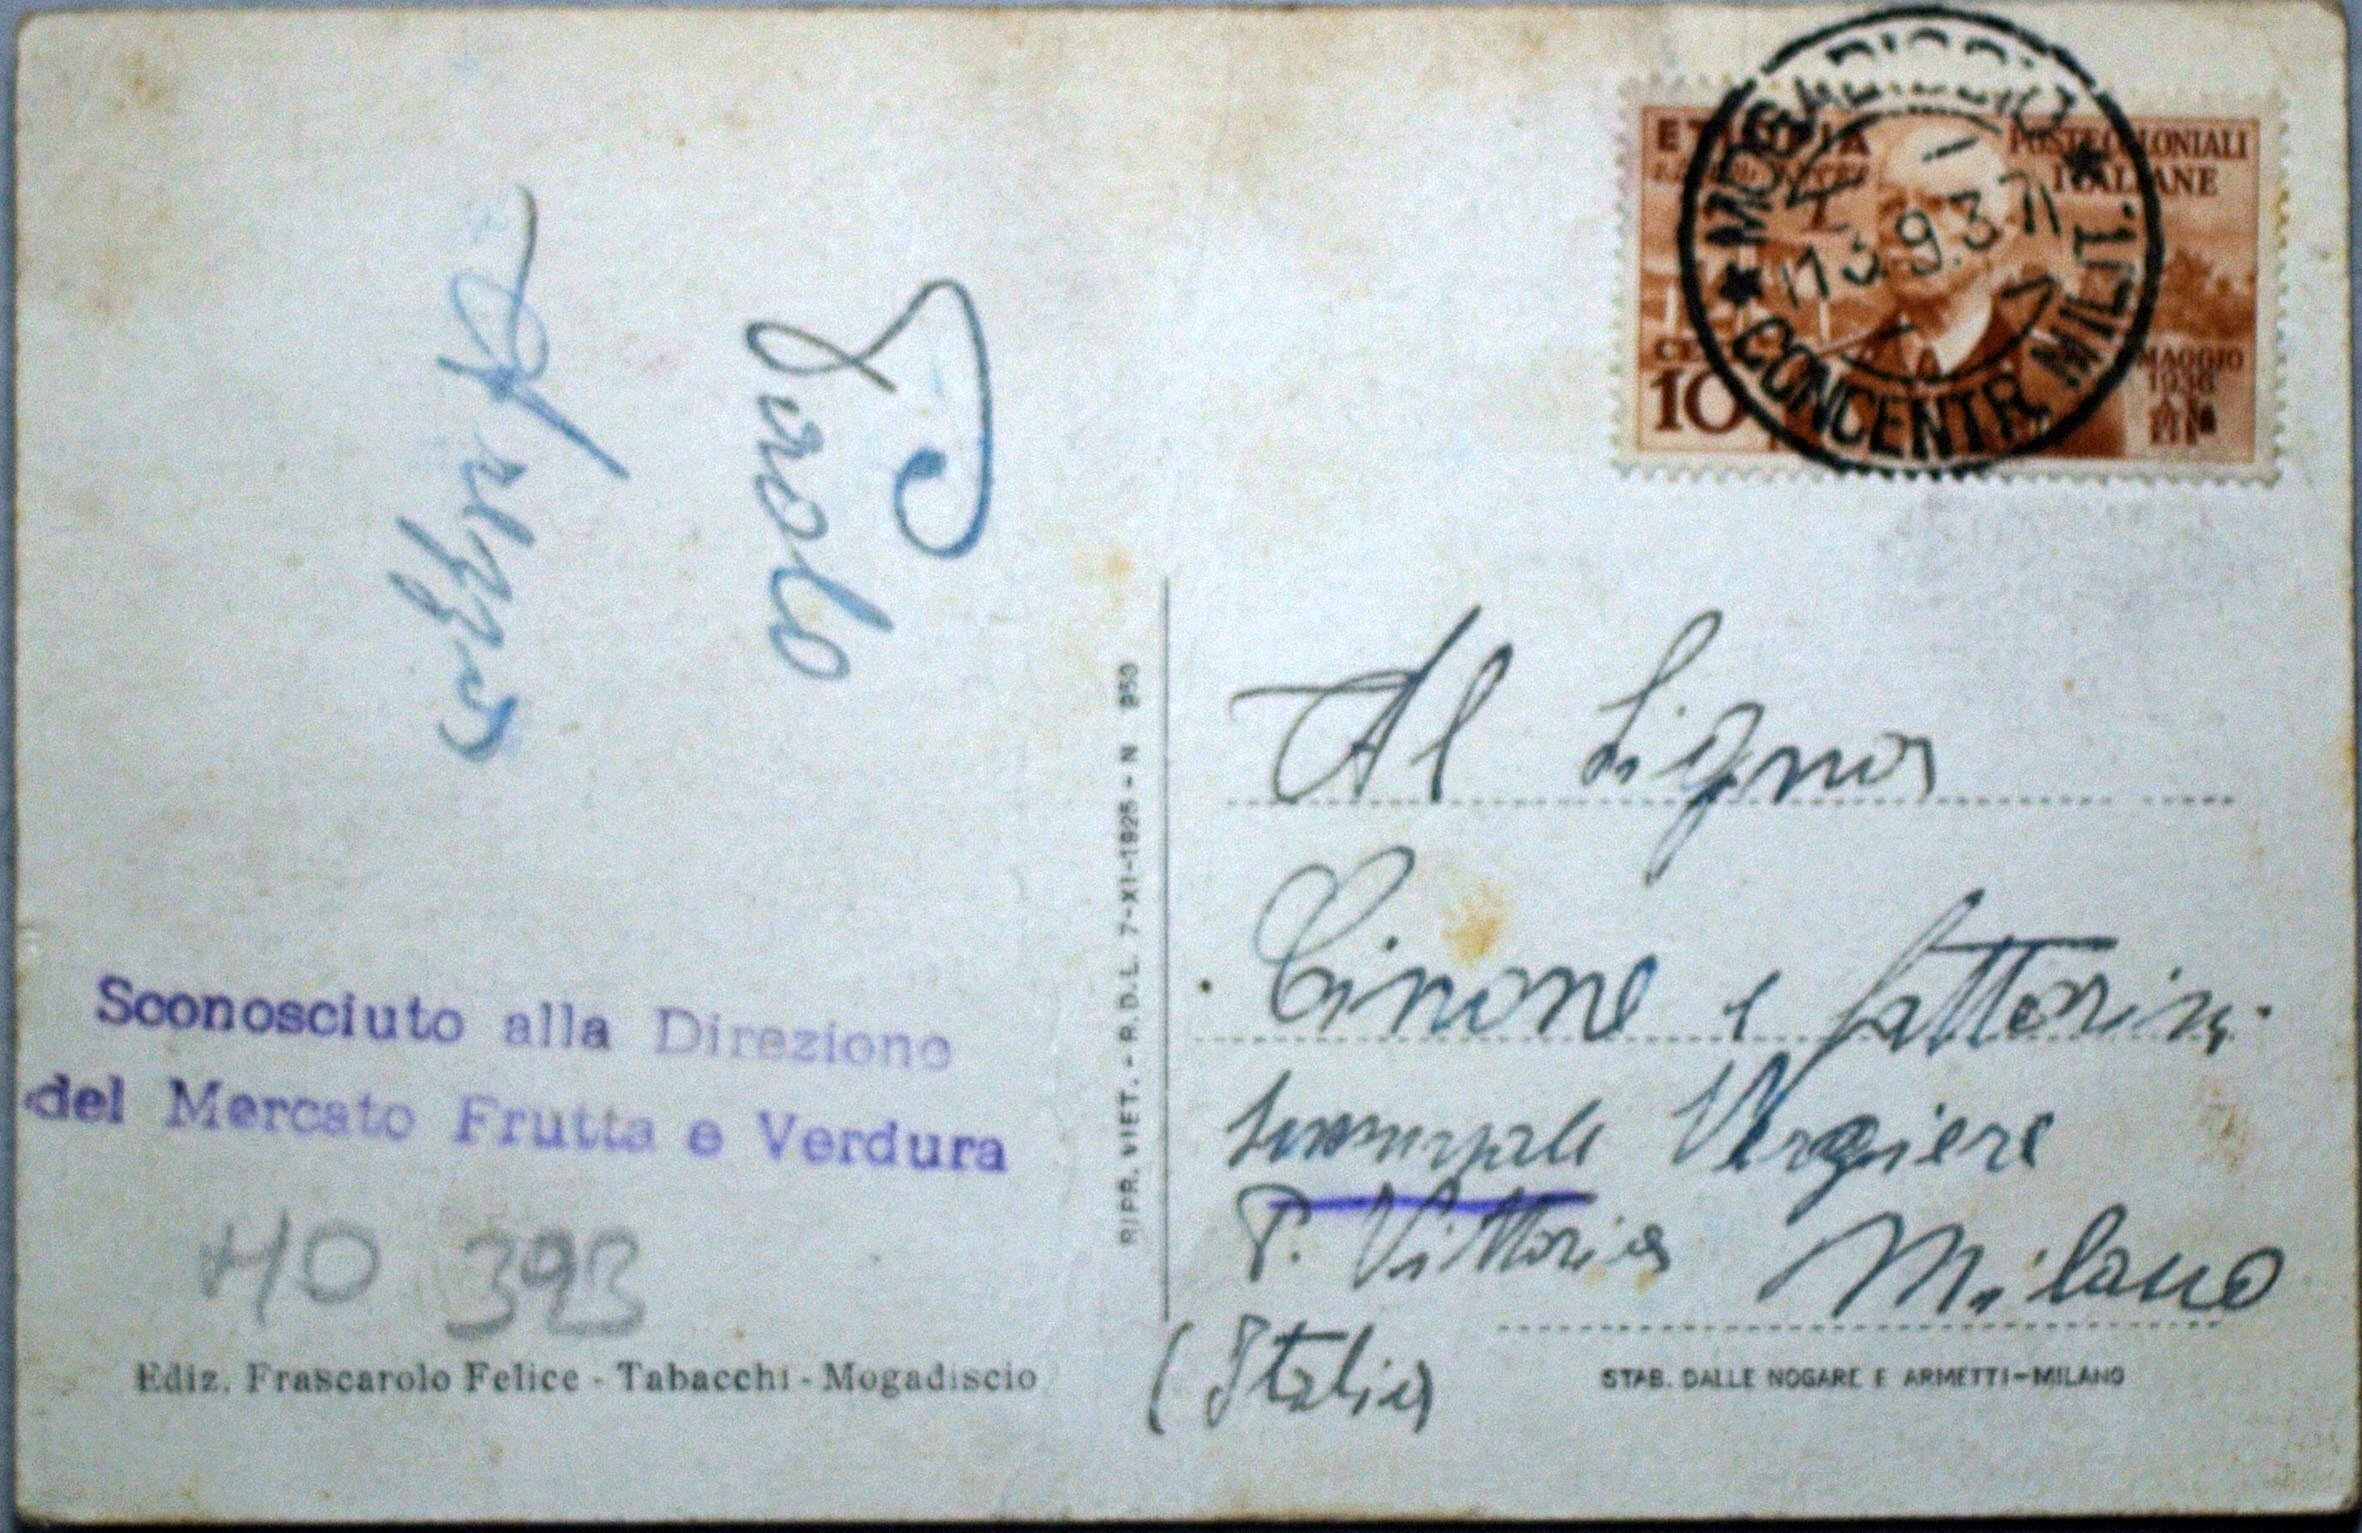 MOGADISCIO
13.9.37
CONCENTR. MIL. 1
ETIOPIA
POSTE COLONIALI
ITALIANE
10
MAGGIO
1936
Sconosciuto alla Direzione
del Mercato Frutta e Verdura
393
Ediz. Frascarolo Felice - Tabacchi - Mogadiscio
RIPR. VIET. - R.D.L. 7-XI-1925 - N 950
Al Signor
Cirone e fattorin
Vergiere
P. Vittoria Milano
(Italia)
STAB. DALLE NOGARE E ARMETTI-MILANO